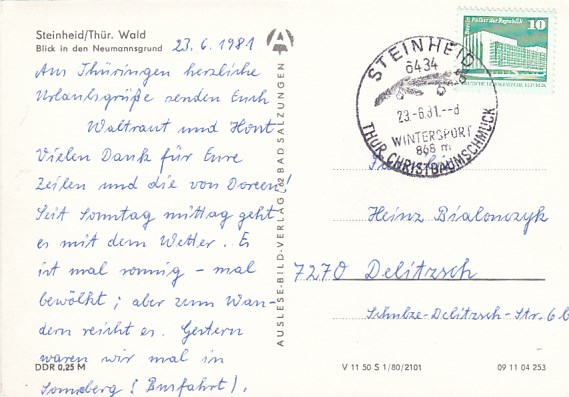 Steinheid/Thür. Wald
Blick in den Neumannsgrund
23.6.1981
Aus Thüringen herzliche
Urlaubsgrüße senden Euch
Waltraut und Horst.
Vielen Dank für Eure
Zeilen und die von Doreen!
Seit Sonntag mittag geht
es mit dem Wetter. Es
ist mal sonnig – mal
bewölkt; aber zum Wan-
dern reicht es. Gestern
waren wir mal in
Sonneberg (Busfahrt).
DDR 0,25 M
AUSLESE-BILD-VERLAG 682 BAD SALZUNGEN
10
STEINHEID
6434
23.-6.81.--8
WINTERSPORT
868 m
THÜR. CHRISTBAUMSCHMUCK
Familie
Heinz Bialonczyk
7270 Delitzsch
Schulze-Delitzsch-Str. 6b
V 11 50 S 1/80/2101
09 11 04 253